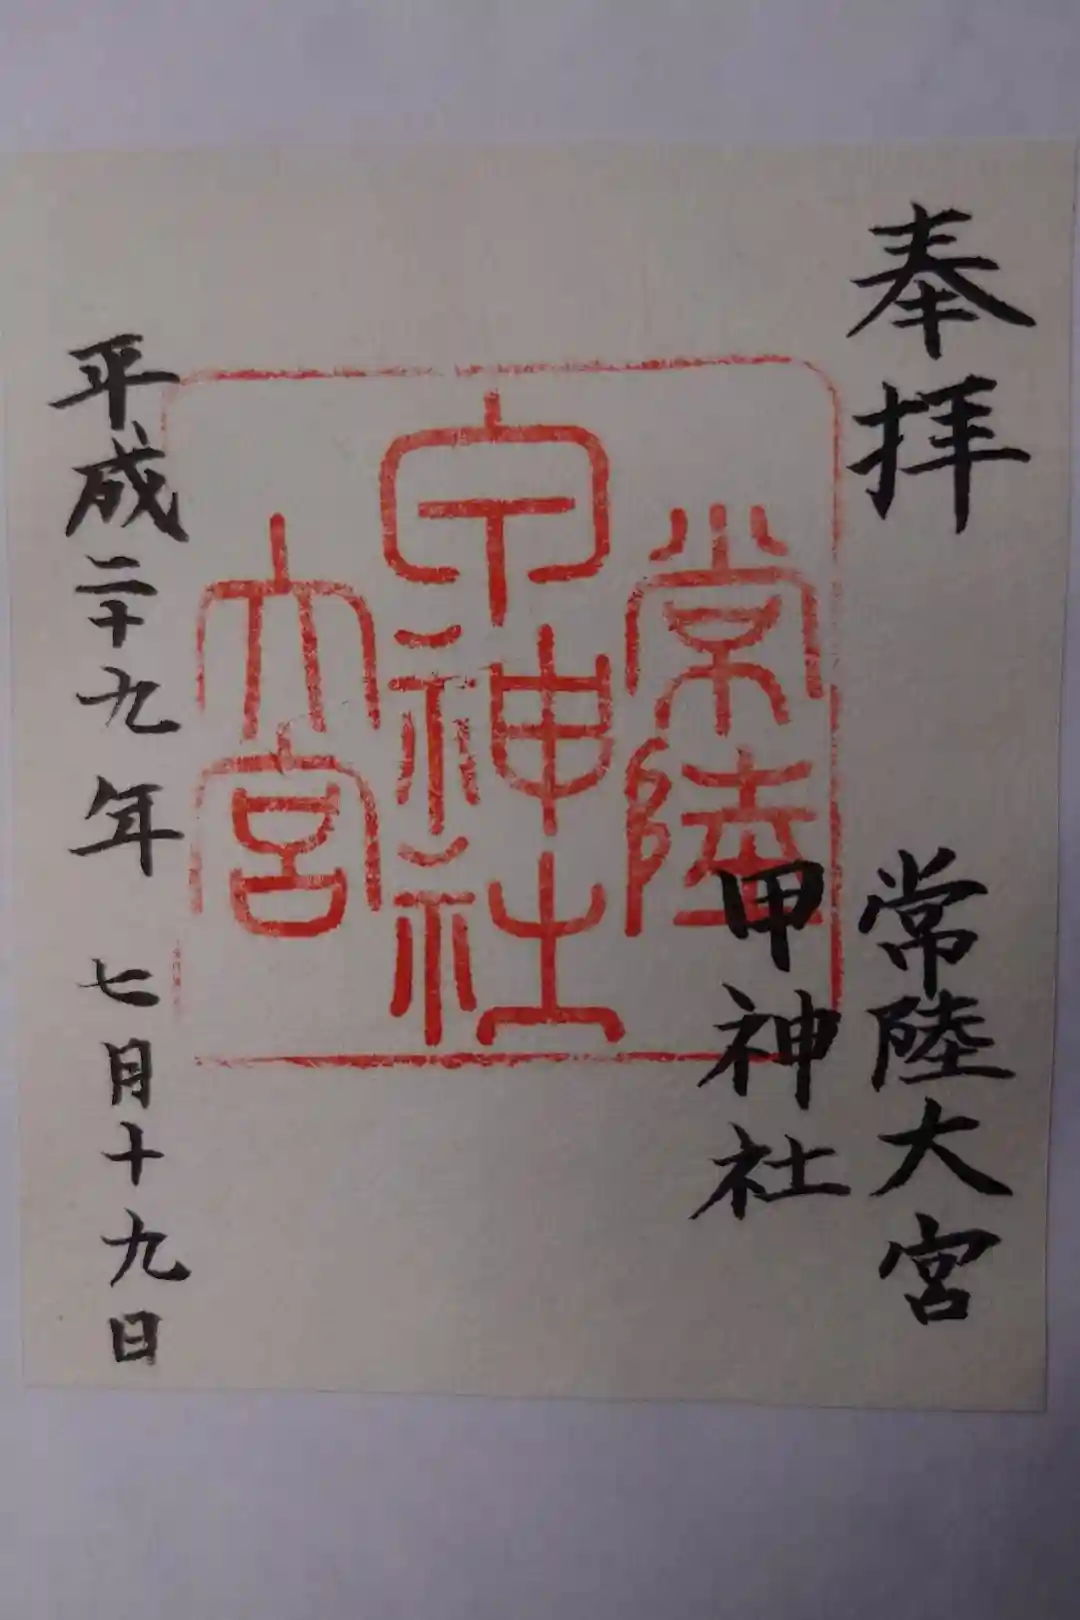 奉拝
常陸大宮
甲神社
常陸
甲神社
大宮
平成二十九年七月十九日